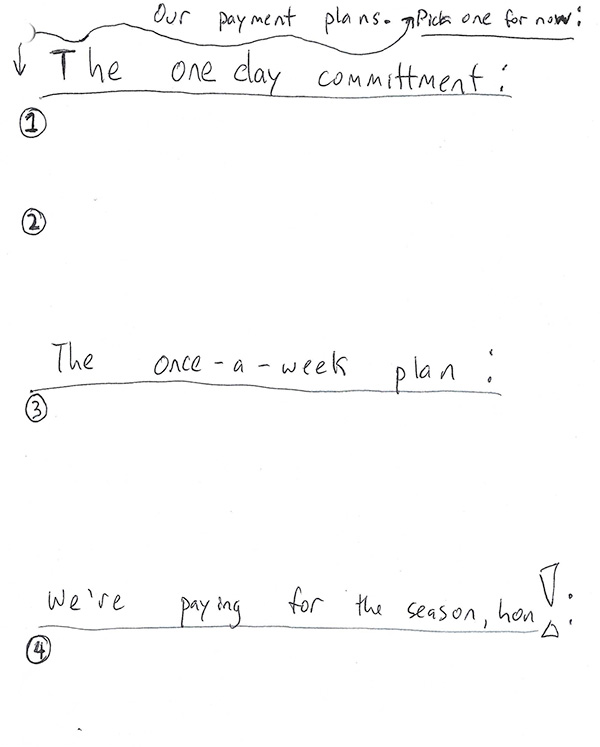 Our payment plans. Pick one for now:
The one day committment:
1
2
The once-a-week plan:
3
We're paying for the season, hon!:
4